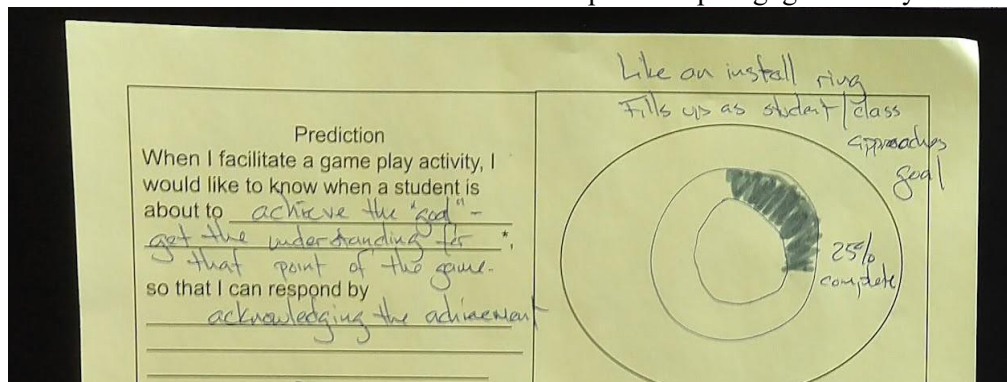 Prediction
When I facilitate a game play activity, I
would like to know when a student is
about to achieve the "goal" -
get the understanding for *,
that point of the game.
so that I can respond by
acknowledging the achievement
Like an install ring
Fills up as student/class
approaches
goal
25%
complete